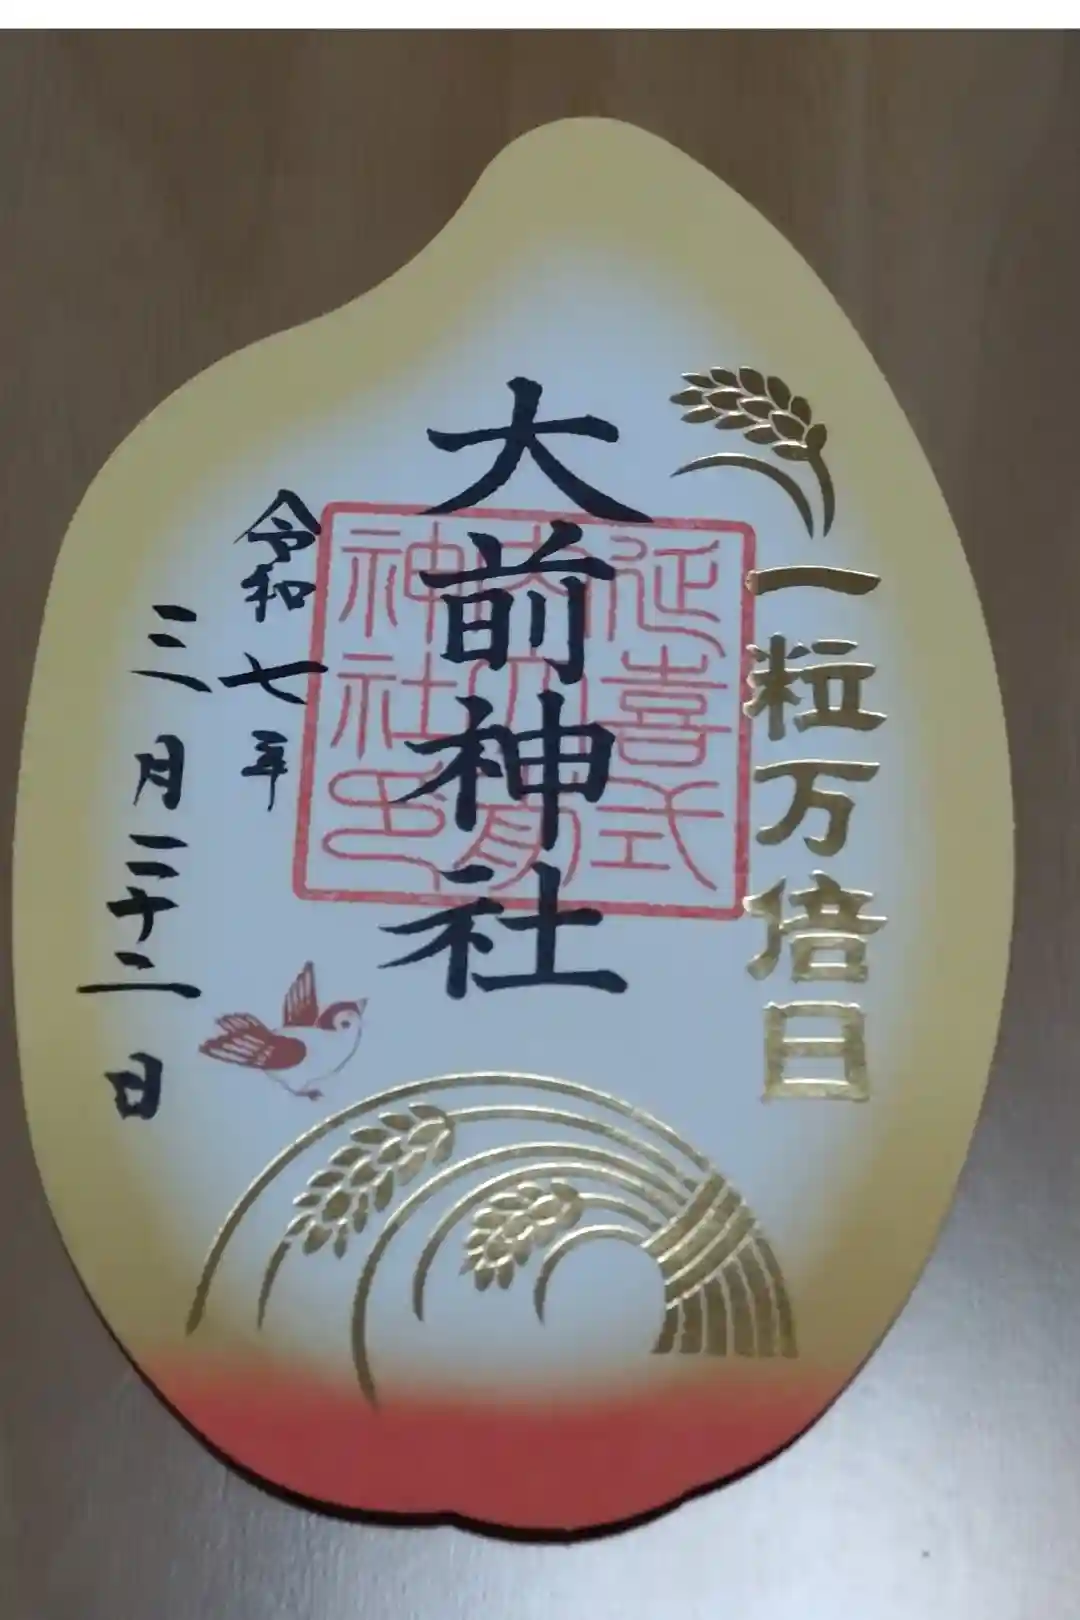 一粒万倍日
延喜式
内大前
神社印
大前神社
令和七年
三月二十二日